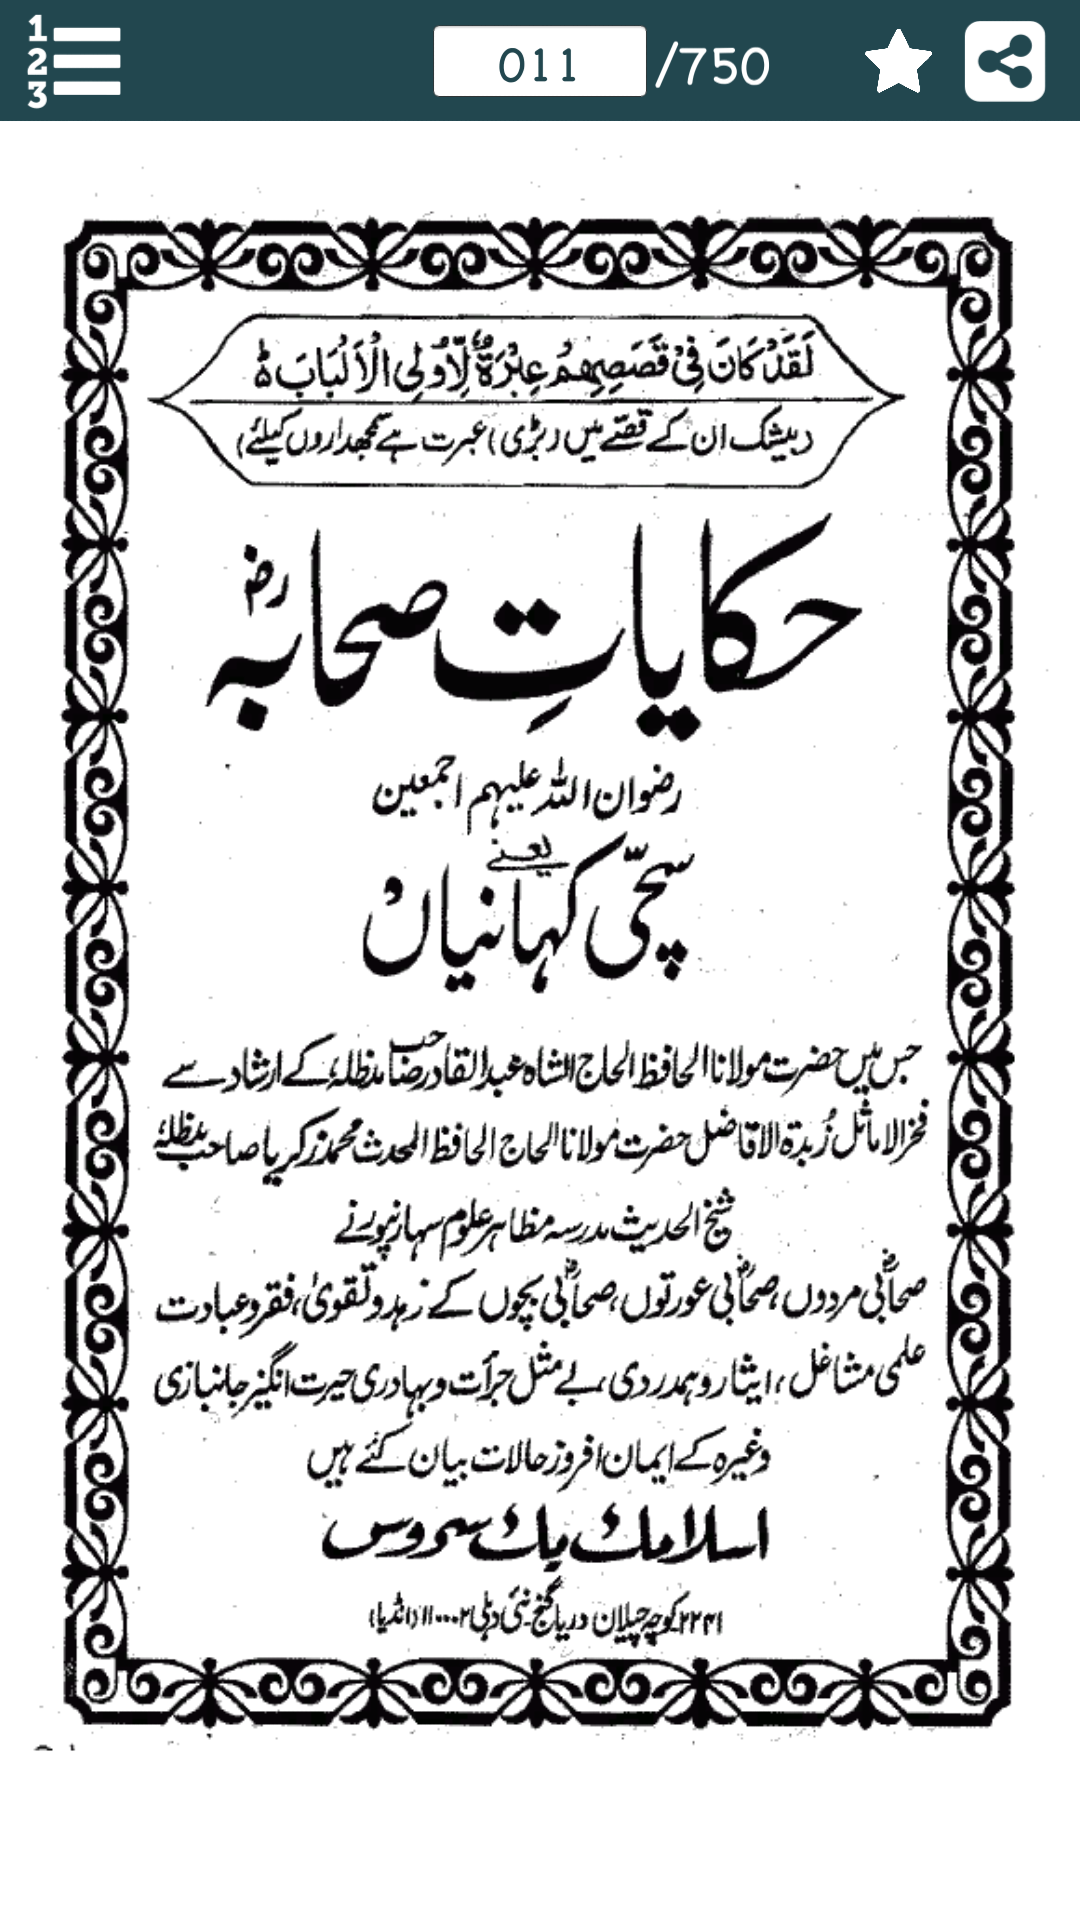 1
2
3
011 /750
لَقَدْ كَانَ فِيْ قَصَصِهِمْ عِبْرَةٌ لِّاُولِی الْاَلْبَابَ ط
(بیشک ان کے قصّے میں (بڑی) عبرت ہے سمجھداروں کیلئے)
حکایاتِ صحابہ رض
رضوان اللہ علیہم اجمعین
یعنے
سچّی کہانیاں
جس میں حضرت مولانا الحافظ الحاج الشاہ عبدالقادر رضا صاحب مدظلہٗ کے ارشاد سے
فخر الاماثل زُبدۃ الافاضل حضرت مولانا الحاج الحافظ المحدث محمد زکریا صاحب مدظلہٗ
شیخ الحدیث مدرسہ مظاہر علوم سہارنپور نے
صحابیؓ مردوں، صحابیؓ عورتوں، صحابیؓ بچوں کے زہد و تقویٰ، فقر و عبادت
علمی مشاغل، ایثار و ہمدردی، بے مثل جرأت و بہادری حیرت انگیز جانبازی
وغیرہ کے ایمان افروز حالات بیان کئے ہیں
اسلامک بک سروس
۲۲۴۱ کوچہ چیلان دریا گنج۔ نئی دہلی ۱۱۰۰۰۲ (انڈیا)